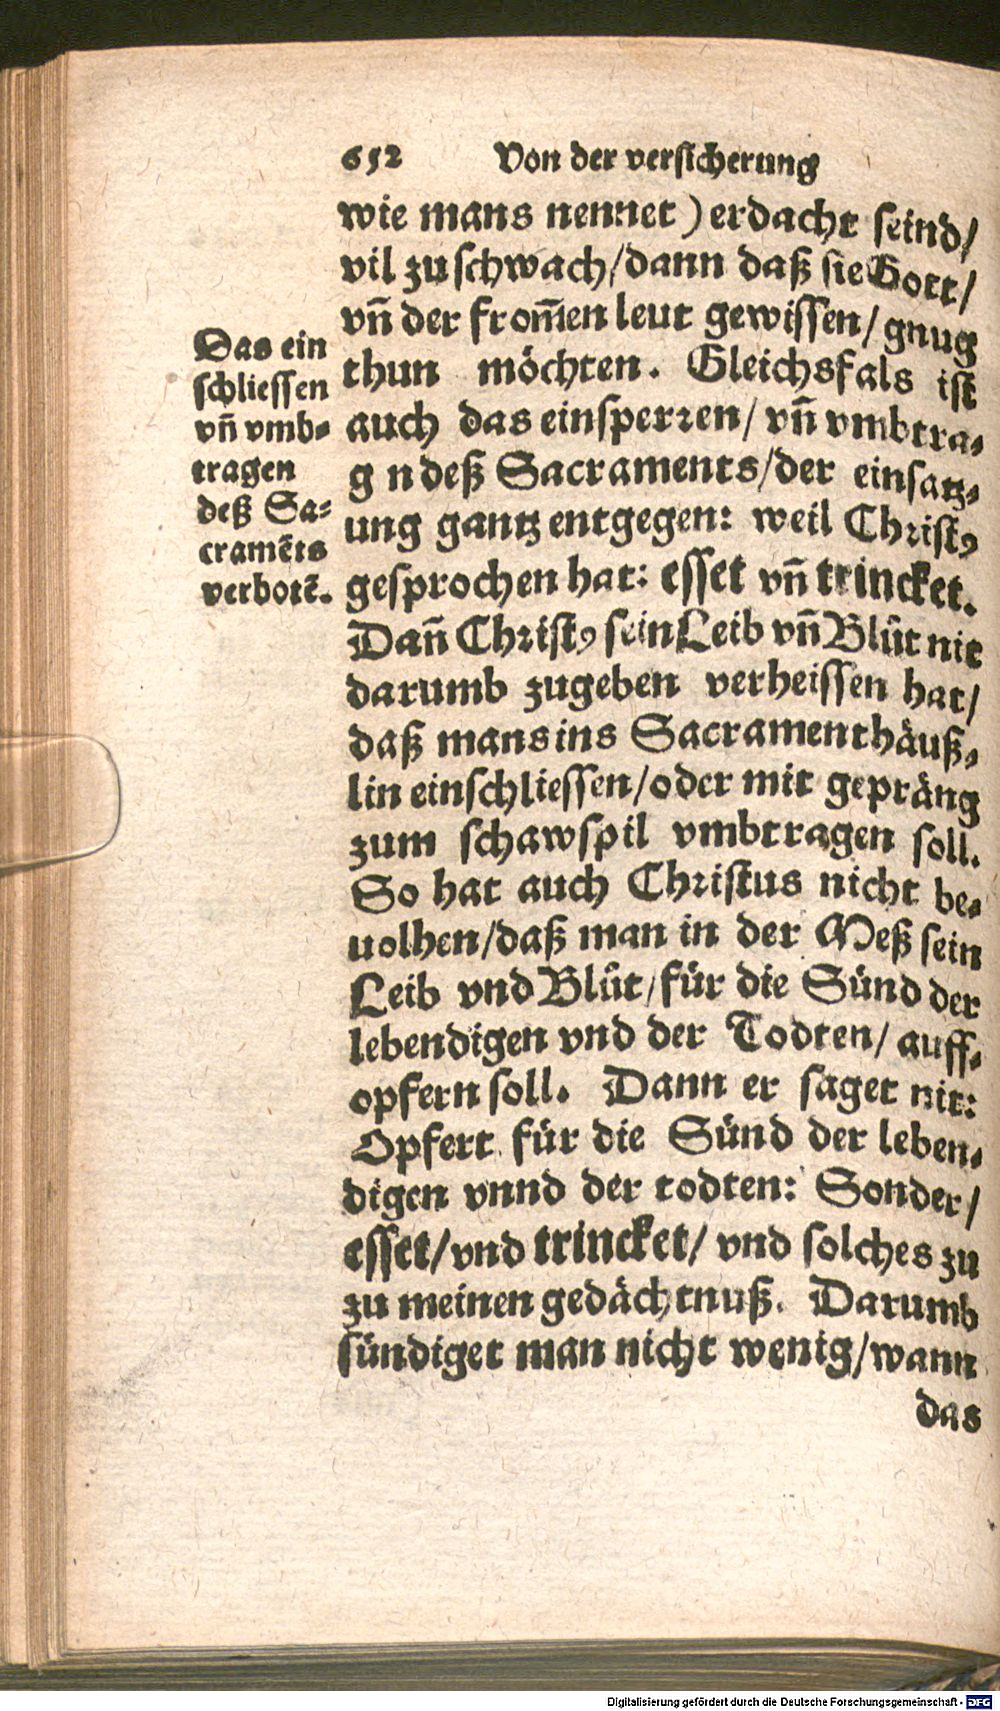 652 Von der versicherung
wie mans nennet) erdacht seind/
vil zu schwach/dann daß sie Gott/
vñ der from̃en leut gewissen/ gnug
thun möchten. Gleichsfals ist
auch das einsperren/ vñ vmbtra⸗
g n deß Sacraments/der einsatz⸗
ung gantz entgegen: weil Christꝰ
gesprochen hat: esset vñ trincket.
Dañ Christꝰ sein Leib vñ Blůt nit
darumb zugeben verheissen hat/
daß mans ins Sacramenthäuß⸗
lin einschliessen/oder mit gepräng
zum schawspil vmbtragen soll.
So hat auch Christus nicht be⸗
uolhen/daß man in der Meß sein
Leib vnd Blůt/für die Sünd der
lebendigen vnd der Todten/ auff⸗
opfern soll. Dann er saget nit:
Opfert für die Sünd der leben⸗
digen vnnd der todten: Sonder/
esset/vnd trincket/ vnd solches zu
zu meinen gedächtnuß. Darumb
sündiget man nicht wenig/wann
das
Das ein
schliessen
vñ vmb⸗
tragen
deß Sa⸗
cramẽts
verbotẽ.
Digitalisierung gefördert durch die Deutsche Forschungsgemeinschaft - DFG